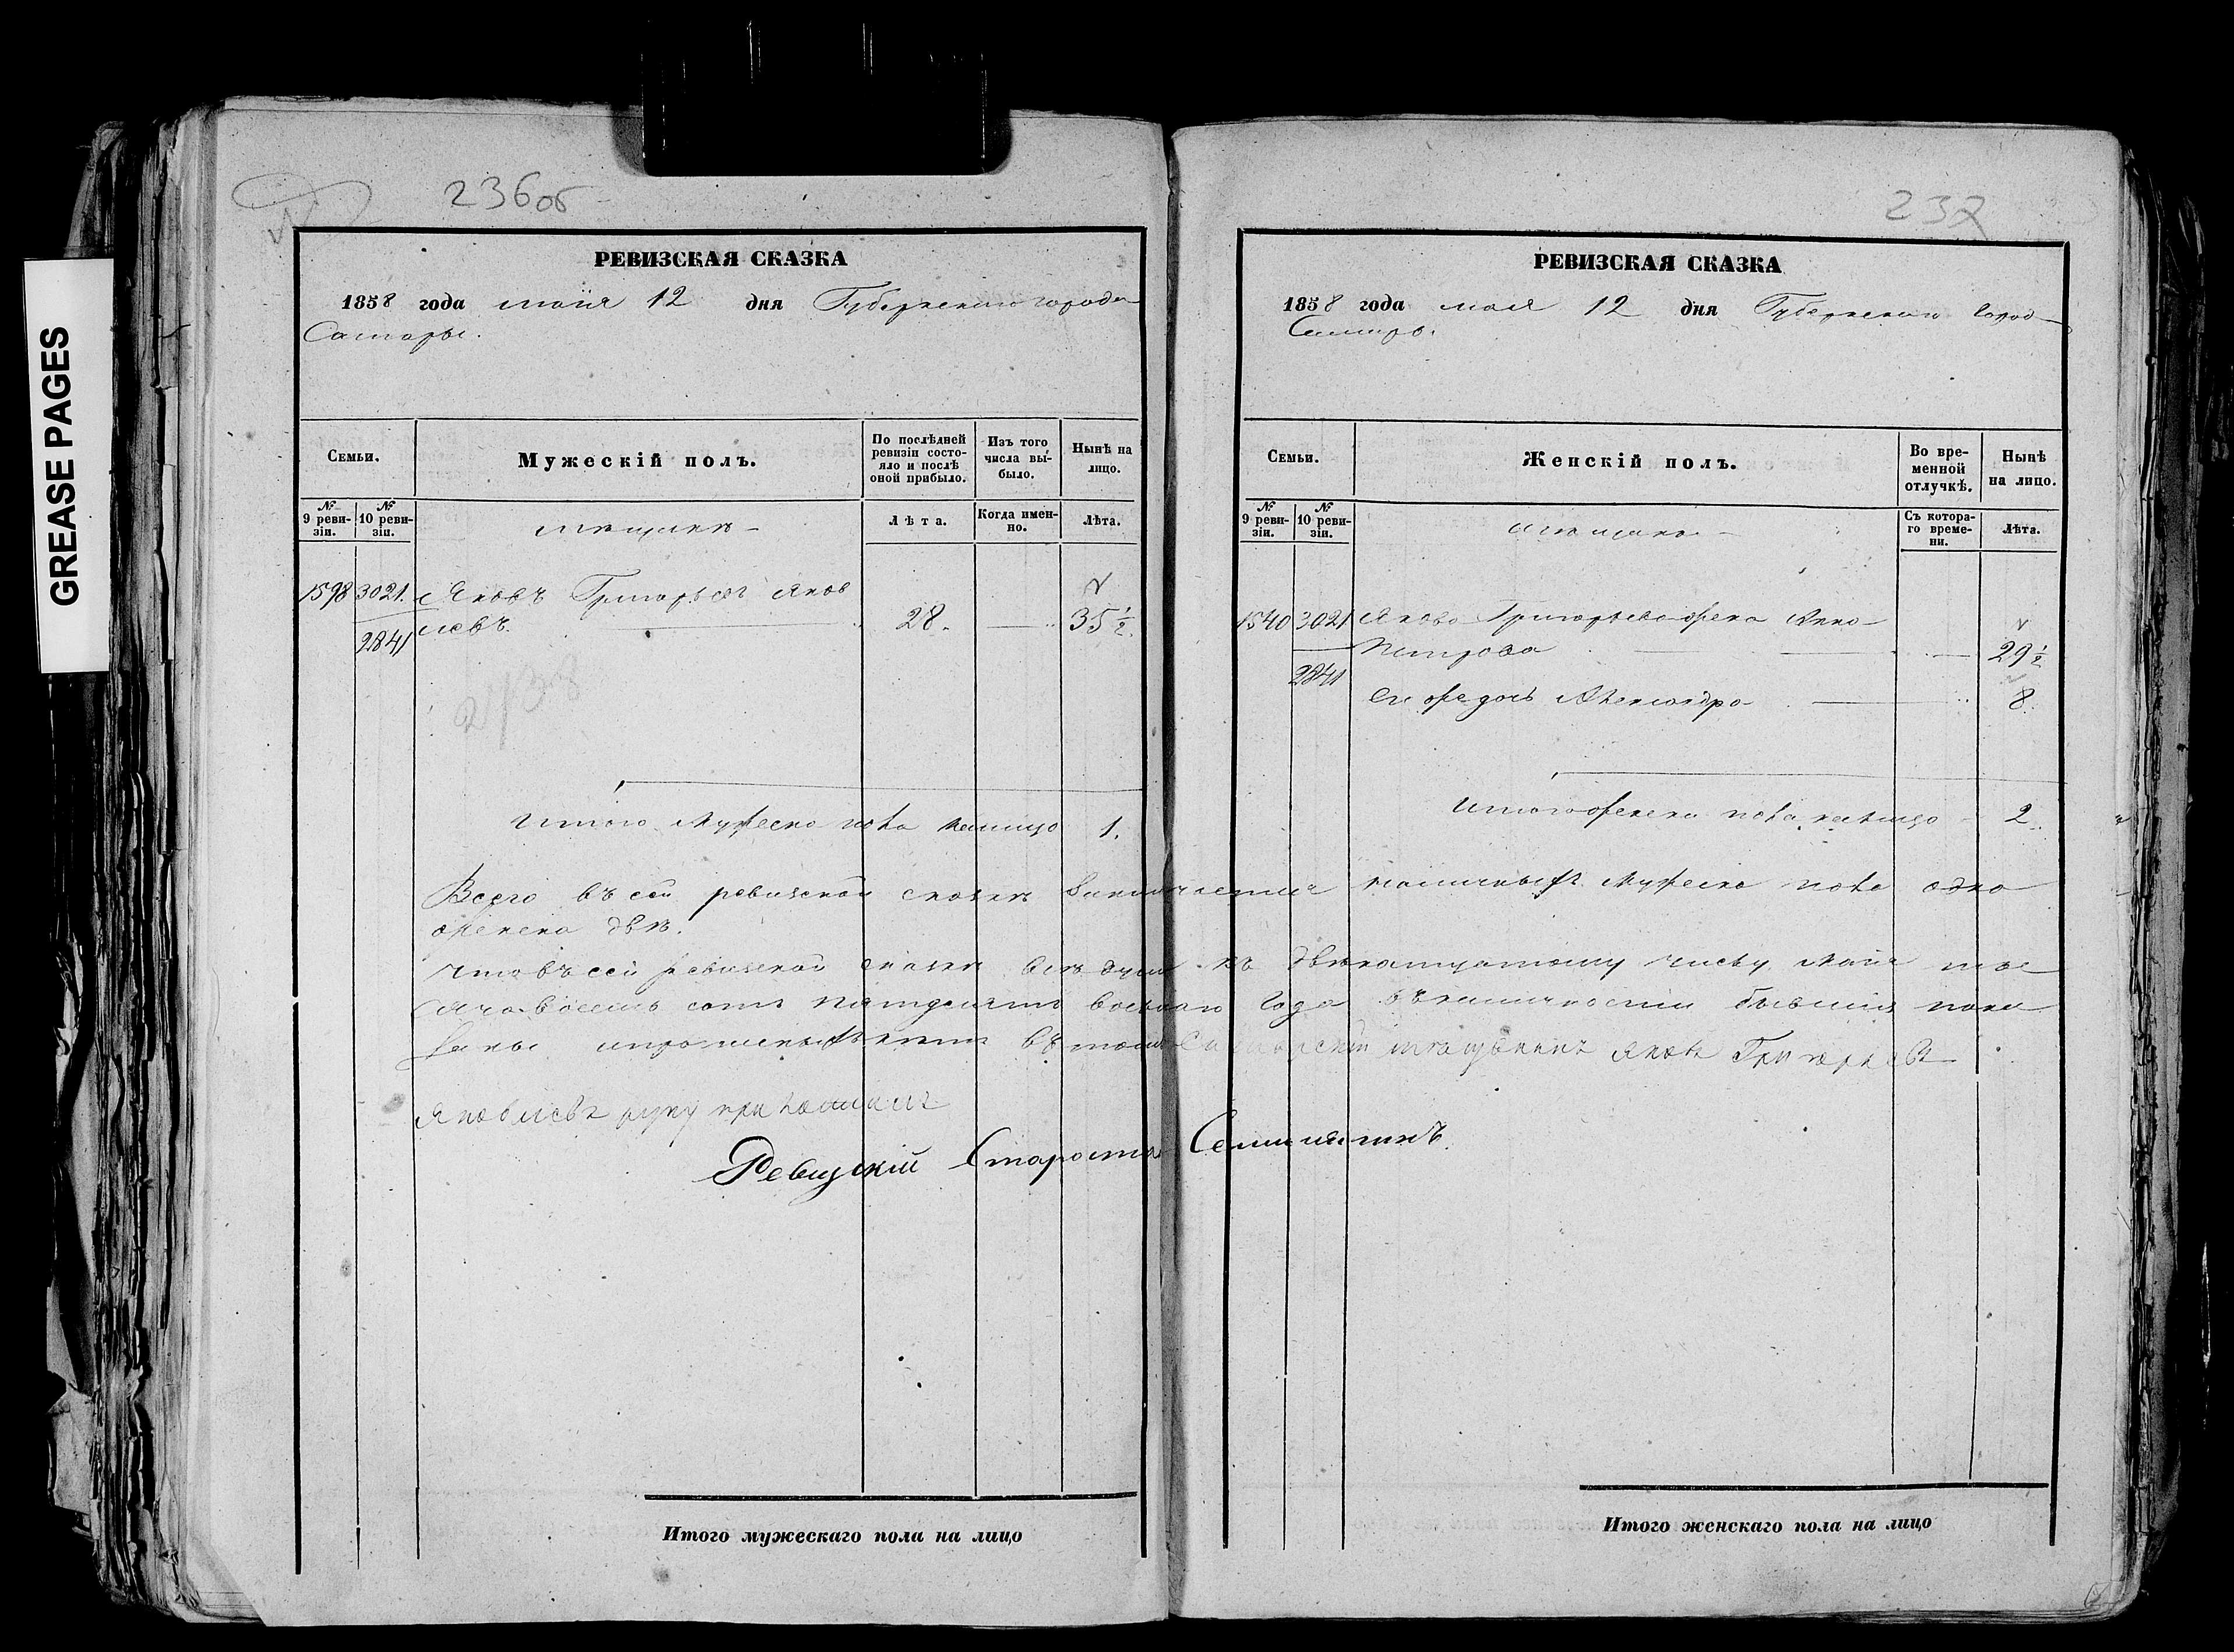 GREASE PAGES
236об
РЕВИЗСКАЯ СКАЗКА
1858 года мая 12 дня Губернскаго города
Самары.
Семьи.
Мужескій полъ.
По послѣдней ревизіи состо-
яло и послѣ оной прибыло.
Изъ того числа вы-
было.
Нынѣ на лицо.
№ 9 реви-
зіи.
№ 10 реви-
зіи.
мещане
Лѣта.
Когда имен-
но.
Лѣта.
1598 3021. Яковъ Григорьевъ Яков
2841 левъ. 28. 35 1/2.
2438
Итого мужеска пола налицо 1.
237
РЕВИЗСКАЯ СКАЗКА
1858 года мая 12 дня Губернскаго город
Самары.
Семьи.
Женскій полъ.
Во вре-
менной
отлучкѣ.
Нынѣ
на лицо.
№ 9 реви-
зіи.
№ 10 реви-
зіи.
Съ котора-
го време-
ни.
Лѣта.
1540 3021 Якова Григорьева жена Анна
2841 Петрова 29 1/2
Ея же дочь Александра 8.
Итого женска пола налицо 2.
Всего въ сей ревизской сказкѣ заключается наличныхъ мужеска пола одна
женска двѣ.
Что въ сей ревизской сказкѣ всѣ души къ двенатцатому числу мая тыс
яча восемь сотъ пятдесятъ восмаго года въ наличности бывшия пока
заны и прописныхъ нетъ въ томъ Самарскій мещанинъ Яковъ Григорьев
Яковлевъ руку приложилъ
Ревизскій Староста
Итого мужескаго пола на лицо
Итого женскаго пола на лицо